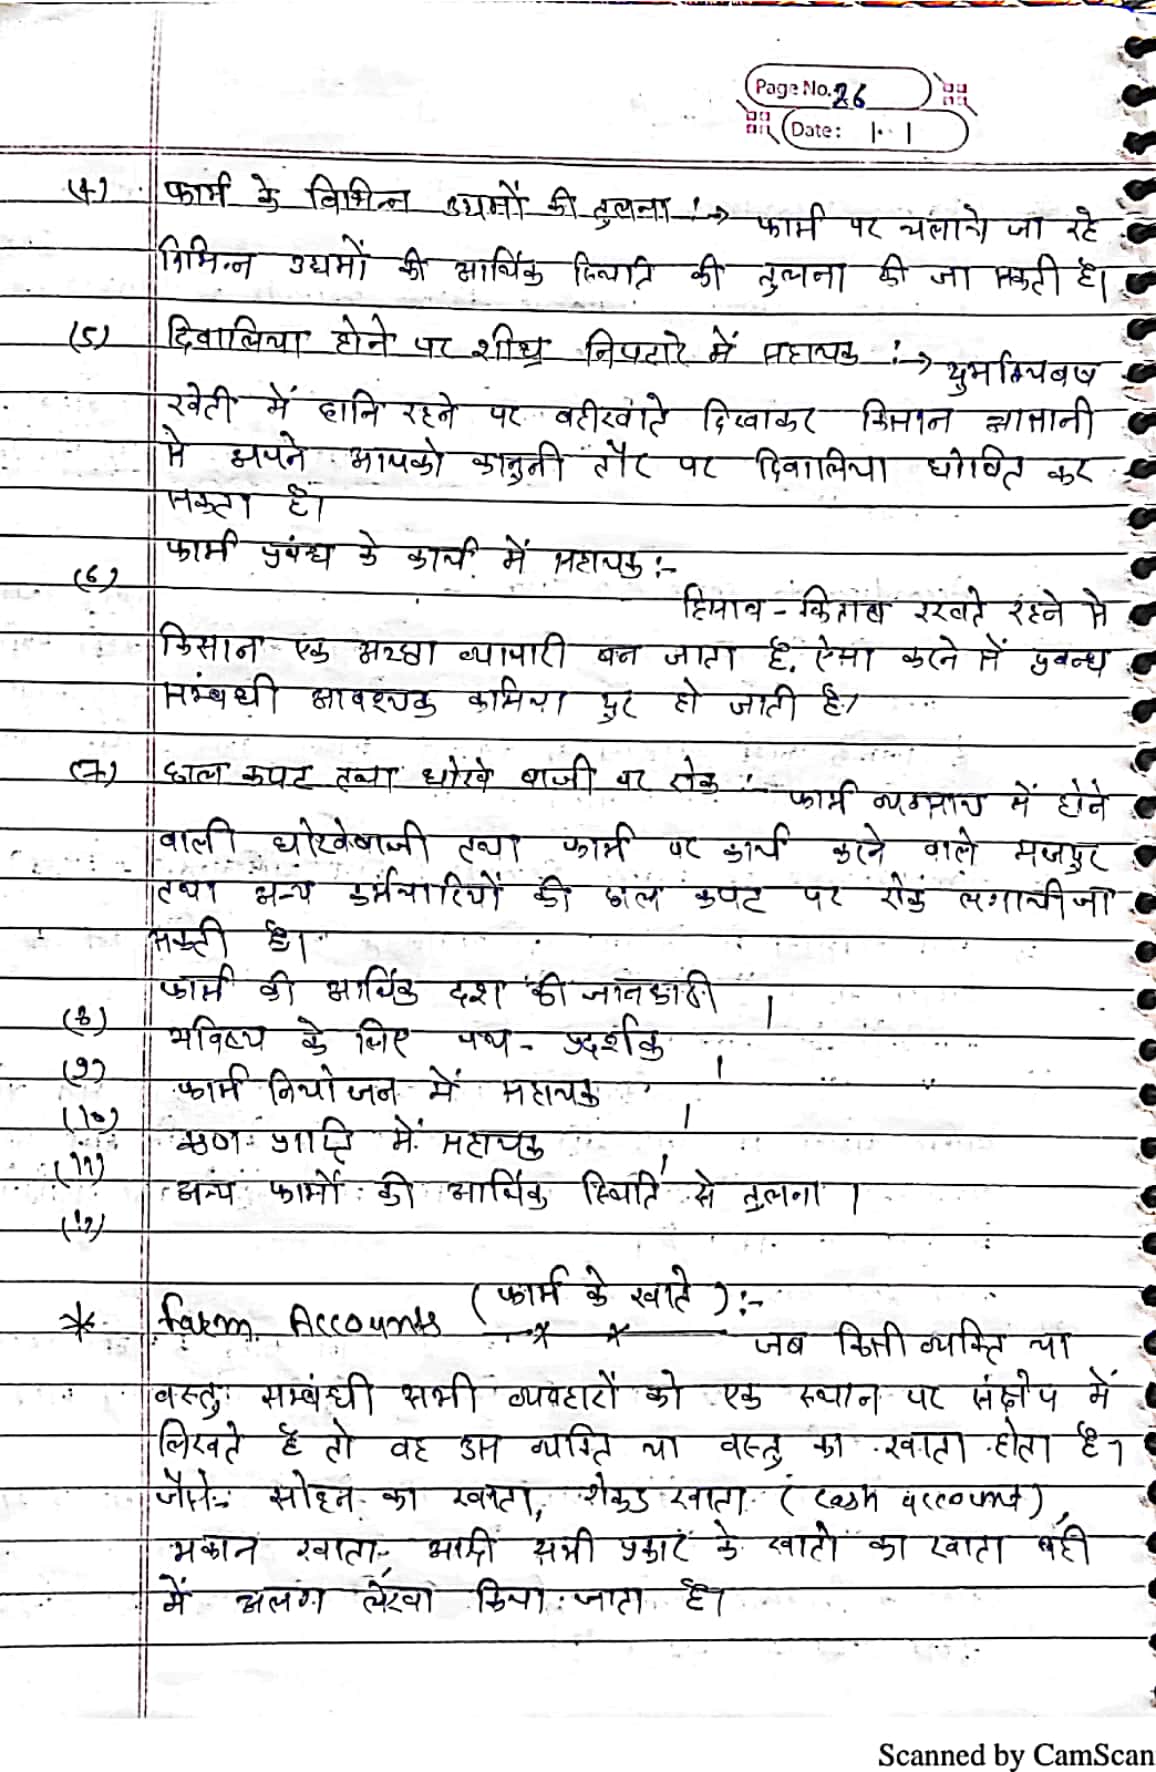 Page No. 26
Date: 1. 1
(4) फार्म के विभिन्न उद्यमों की तुलना :→ फार्म पर चलाये जा रहे
विभिन्न उद्यमों की आर्थिक स्थिति की तुलना की जा सकती है।
(5) दिवालिया होने पर शीघ्र निपटारे में सहायक :→
खेती में हानि रहने पर बहीखाते दिखाकर किसान आसानी
से अपने आपको कानुनी तौर पर दिवालिया घोषित कर
सकता है।
(6) फार्म प्रबंध के कार्य में सहायक :-
हिसाब - किताब रखते रहने से
किसान एक अच्छा व्यापारी बन जाता है, ऐसा करने में प्रबन्ध
सम्बंधी आवश्यक कमिया दुर हो जाती है।
(7) छाल कपट तथा धोखे बाजी पर रोक :- फार्म व्यवसाय में होने
वाली धोखेबाजी तथा फार्म पर कार्य करने वाले मजदुर
तथा अन्य कर्मचारियों की छल कपट पर रोक लगायी जा
सकती है।
(8) फार्म की आर्थिक दश की जानकारी ।
(9) भविष्य के लिए पथ - प्रदर्शक ।
(10) फार्म नियोजन में सहायक ।
(11) ऋण प्राप्ति में सहायक ।
(12) अन्य फार्मों की आर्थिक स्थिति से तुलना ।
* Farm Accounts (फार्म के खाते ) :- जब किसी व्यक्ति या
वस्तु सम्बंधी सभी व्यवहारों को एक स्थान पर संक्षेप में
लिखते है तो वह उस व्यक्ति या वस्तु का खाता होता है।
जैसे:- सोहन का खाता, रोकड खाता (Cash account),
मकान खाता आदी सभी प्रकार के खातो का खाता बही
में अलग लेखा किया जाता है।
Scanned by CamScan